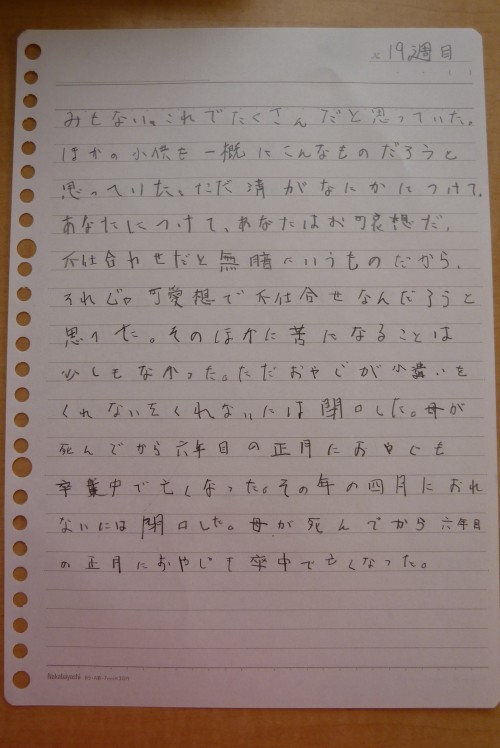 × 19週目
みもない。これでたくさんだと思っていた。
ほかの小供も一概にこんなものだろうと
思っていた。ただ清がなにかにつけて、
あなたにつけて、あなたはお可哀想だ、
不仕合わせだと無暗にいうものだから、
それじゃ可愛想で不仕合せなんだろうと
思った。そのほかに苦になることは
少しもなかった。ただおやじが小遣いを
くれないをくれないには閉口した。母が
死んでから六年目の正月におやじも
卒業中で亡くなった。その年の四月におれ
ないには閉口した。母が死んでから六年目
の正月におやじも卒中で亡くなった。
Nakabayashi